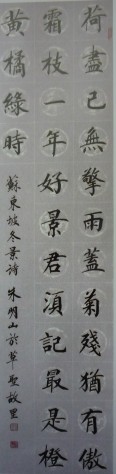 荷盡已無擎雨蓋菊殘猶有傲
霜枝一年好景君須記最是橙
黄橘緑時
蘇東坡冬景詩 朱明山於草聖故里